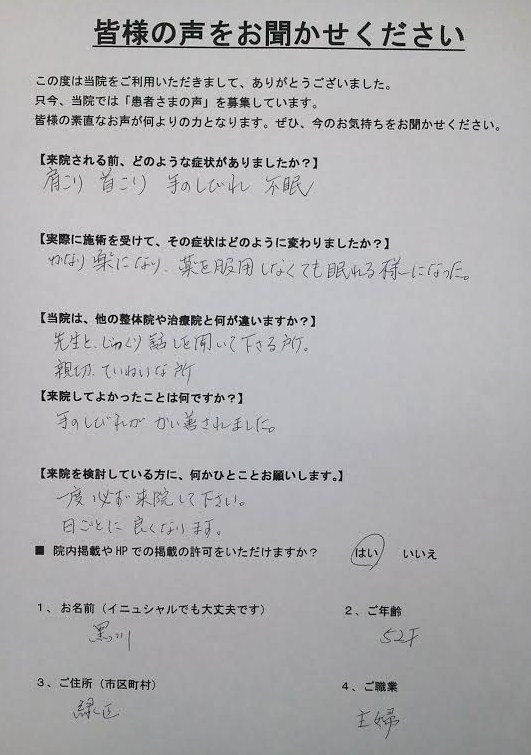 皆様の声をお聞かせください
この度は当院をご利用いただきまして、ありがとうございました。
只今、当院では「患者さまの声」を募集しています。
皆様の素直なお声が何よりの力となります。ぜひ、今のお気持ちをお聞かせください。
【来院される前、どのような症状がありましたか？】
肩こり 首こり 手のしびれ 不眠
【実際に施術を受けて、その症状はどのように変わりましたか？】
かなり楽になり、薬を服用しなくても眠れる様になった。
【当院は、他の整体院や治療院と何が違いますか？】
先生と、じっくり話しを聞いて下さる所。
親切、ていねいな所
【来院してよかったことは何ですか？】
手のしびれが かい善されました。
【来院を検討している方に、何かひとことお願いします。】
一度必ず来院して下さい。
日ごとに良くなります。
■ 院内掲載やHPでの掲載の許可をいただけますか？ はい いいえ
1、お名前（イニュシャルでも大丈夫です） 2、ご年齢
黒川 52才
3、ご住所（市区町村） 4、ご職業
緑区 主婦